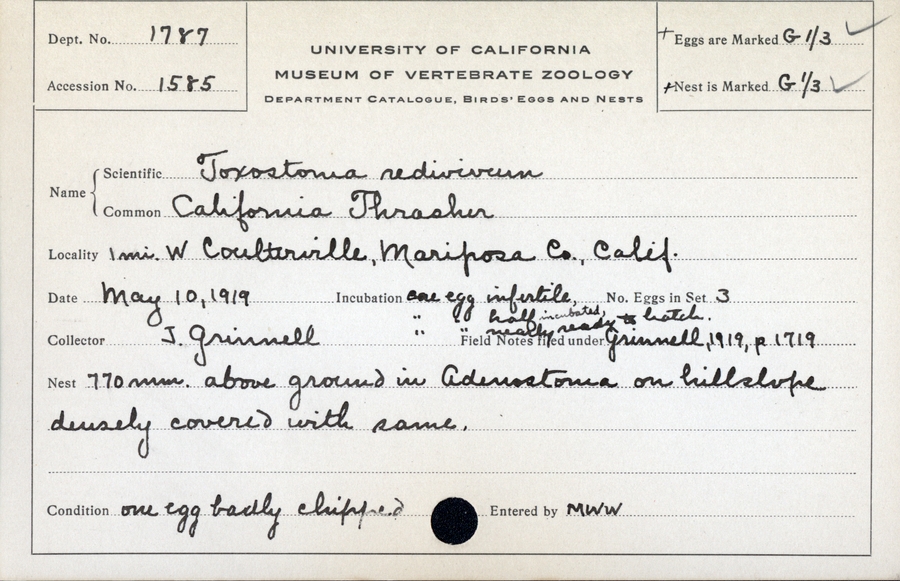 Dept. No. 1787
Accession No. 1585
UNIVERSITY OF CALIFORNIA
MUSEUM OF VERTEBRATE ZOOLOGY
DEPARTMENT CATALOGUE, BIRDS' EGGS AND NESTS
+ Eggs are Marked G 1/3 ✓
+ Nest is Marked G 1/3 ✓
Name { Scientific Toxostoma redivivum
Common California Thrasher
Locality 1 mi. W Coulterville, Mariposa Co., Calif.
Date May 10, 1919 Incubation one egg infertile, No. Eggs in Set 3
" " half incubated,
" " nearly ready to hatch.
Collector J. Grinnell Field Notes filed under Grinnell, 1919, p 1719
Nest 770 mm. above ground in Adenostoma on hillslope
densely covered with same.
Condition one egg badly chipped Entered by MWW